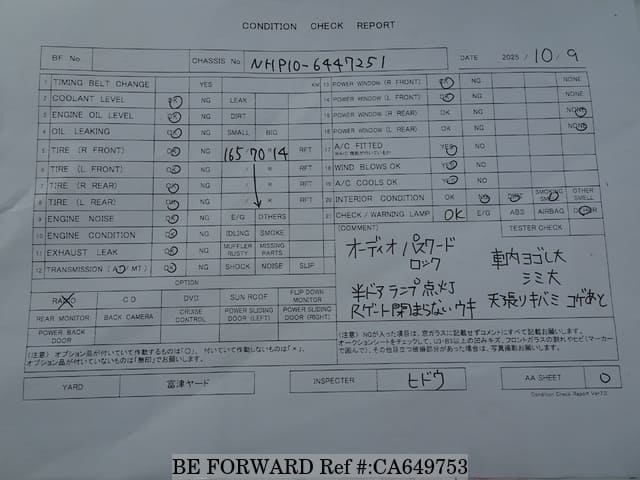 CONDITION CHECK REPORT
BF No. CHASSIS No. NHP10-6447251 DATE 2025 / 10 / 9
1 TIMING BELT CHANGE YES KM
2 COOLANT LEVEL OK NG LEAK
3 ENGINE OIL LEVEL OK NG DIRT
4 OIL LEAKING OK NG SMALL BIG
5 TIRE (R FRONT) OK NG 165/70R14 RFT
6 TIRE (L FRONT) OK NG / R RFT
7 TIRE (R REAR) OK NG / R RFT
8 TIRE (L REAR) OK NG / R RFT
9 ENGINE NOISE OK NG E/G OTHERS
10 ENGINE CONDITION OK NG IDLING SMOKE
11 EXHAUST LEAK OK NG MUFFLER RUSTY MISSING PARTS
12 TRANSMISSION (AT/MT) OK NG SHOCK NOISE SLIP
OPTION
RADIO CD DVD SUN ROOF FLIP DOWN MONITOR
REAR MONITOR BACK CAMERA CRUISE CONTROL POWER SLIDING DOOR (LEFT) POWER SLIDING DOOR (RIGHT)
POWER BACK DOOR
(注意) オプション品が付いていて作動するものは「○」、付いていて作動しないものは「×」、
オプション品が付いていないものは「無印」でお願いします。
13 POWER WINDOW (R FRONT) OK NG NONE
14 POWER WINDOW (L FRONT) OK NG NONE
15 POWER WINDOW (R REAR) OK NG NONE
16 POWER WINDOW (L REAR) OK NG NONE
17 A/C FITTED YES NG
18 WIND BLOWS OK YES NG
19 A/C COOLS OK YES NG
20 INTERIOR CONDITION OK NG DIRTY SMOKING SMELL OTHER SMELL
21 CHECK / WARNING LAMP OK E/G ABS AIRBAG OTHER
(COMMENT) TESTER CHECK
オーディオ パスワード
ロック
車内ヨゴレ大
シミ大
半ドアランプ点灯
Rゲート閉まらない ウキ
天張りキバミ コゲあと
(注意) NGが入った項目は、窓ガラスに記載せずコメントにすべて記載お願いします。
オークションシートをチェックして、U3・B3以上の凹みキズ、フロントガラスの割れやヒビ(マーカー
で囲んで)、その他目立つ破損部分があった場合は、写真撮影お願いします。
YARD 富津ヤード INSPECTER ヒドウ AA SHEET 0
Condition Check Report Ver7.0
BE FORWARD Ref #:CA649753